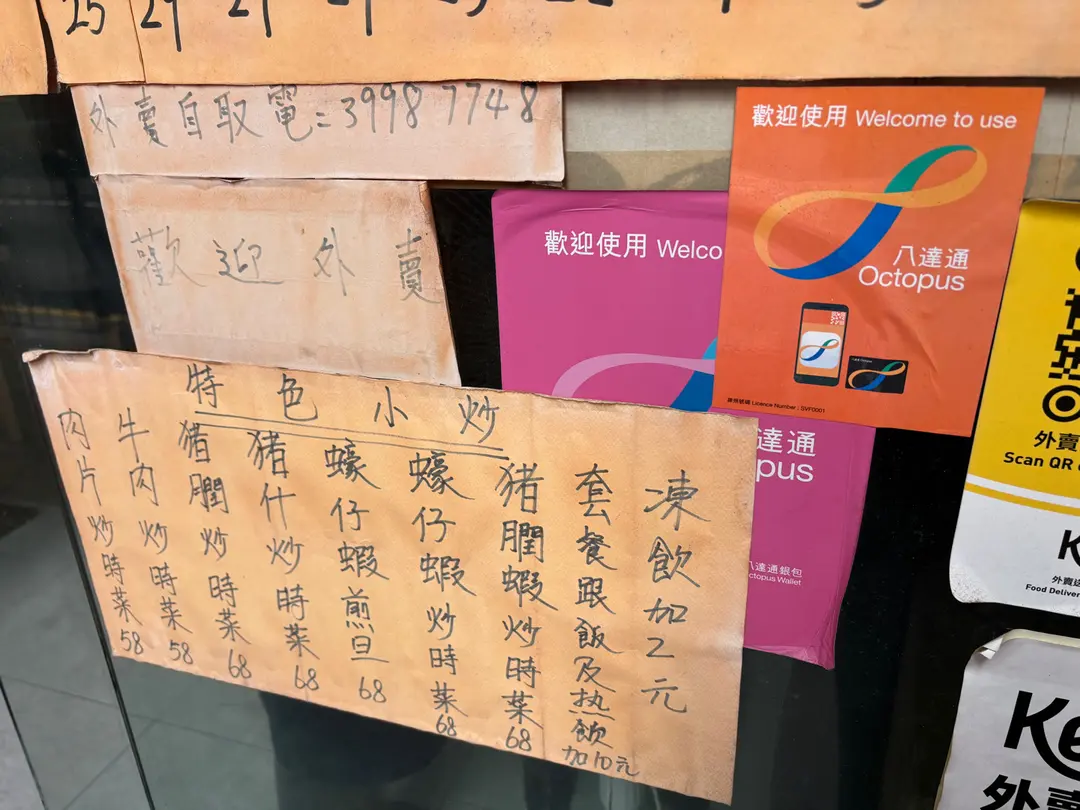 25
外賣自取電:3998 7748
歡迎外賣
特色小炒
肉片炒時菜58
牛肉炒時菜58
猪膶炒時菜68
猪什炒時菜68
蠔仔蝦煎旦68
蠔仔蝦炒時菜68
猪膶蝦炒時菜68
套餐跟飯及热飲加10元
凍飲加2元
歡迎使用 Welco
達通
pus
八達通銀包
ctopus Wallet
歡迎使用 Welcome to use
八達通
Octopus
牌照號碼 Licence Number : SVF0001
外賣
Scan QR
K
外賣
Food Deliver
Ke
外賣